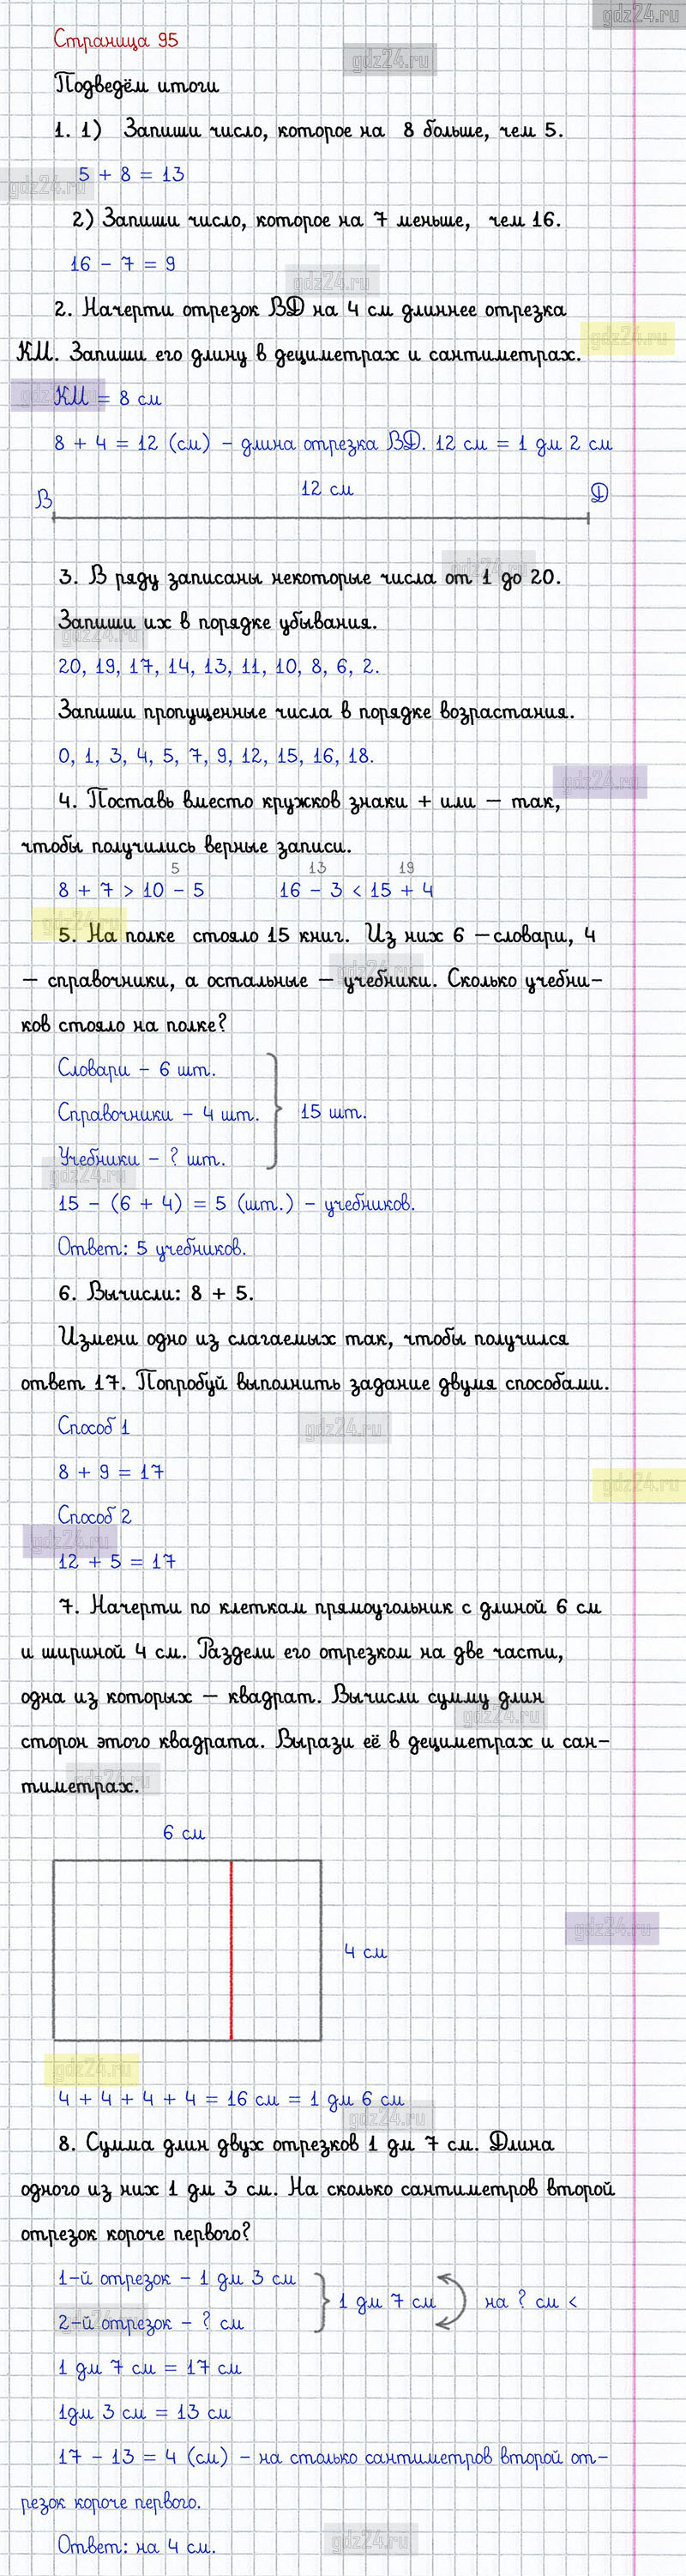 gdz24.ru
Страница 95
gdz24.ru
Подведём итоги
1. 1) Запиши число, которое на 8 больше, чем 5.
5 + 8 = 13
gdz24.ru
2) Запиши число, которое на 7 меньше, чем 16.
16 - 7 = 9
gdz24.ru
2. Начерти отрезок ВД на 4 см длиннее отрезка
gdz24.ru
КМ. Запиши его длину в дециметрах и сантиметрах.
gdz24.ru
КМ = 8 см
8 + 4 = 12 (см) - длина отрезка ВД. 12 см = 1 дм 2 см
В 12 см Д
3. В ряду записаны некоторые числа от 1 до 20.
gdz24.ru
Запиши их в порядке убывания.
gdz24.ru
20, 19, 17, 14, 13, 11, 10, 8, 6, 2.
Запиши пропущенные числа в порядке возрастания.
0, 1, 3, 4, 5, 7, 9, 12, 15, 16, 18.
gdz24.ru
4. Поставь вместо кружков знаки + или − так,
чтобы получились верные записи.
5 13 19
8 + 7 > 10 - 5 16 - 3 < 15 + 4
gdz24.ru
5. На полке стояло 15 книг. Из них 6 – словари, 4
gdz24.ru
– справочники, а остальные – учебники. Сколько учебни-
ков стояло на полке?
Словари - 6 шт.
Справочники - 4 шт. 15 шт.
Учебники - ? шт.
gdz24.ru
15 - (6 + 4) = 5 (шт.) - учебников.
Ответ: 5 учебников.
6. Вычисли: 8 + 5.
Измени одно из слагаемых так, чтобы получился
ответ 17. Попробуй выполнить задание двумя способами.
Способ 1
gdz24.ru
8 + 9 = 17
gdz24.ru
Способ 2
gdz24.ru
12 + 5 = 17
7. Начерти по клеткам прямоугольник с длиной 6 см
и шириной 4 см. Раздели его отрезком на две части,
одна из которых – квадрат. Вычисли сумму длин
gdz24.ru
сторон этого квадрата. Вырази её в дециметрах и сан-
тиметрах.
gdz24.ru
6 см
gdz24.ru
4 см
gdz24.ru
4 + 4 + 4 + 4 = 16 см = 1 дм 6 см
gdz24.ru
8. Сумма длин двух отрезков 1 дм 7 см. Длина
одного из них 1 дм 3 см. На сколько сантиметров второй
отрезок короче первого?
1-й отрезок - 1 дм 3 см
1 дм 7 см на ? см <
2-й отрезок - ? см
gdz24.ru
1 дм 7 см = 17 см
1дм 3 см = 13 см
17 - 13 = 4 (см) - на столько сантиметров второй от-
резок короче первого.
Ответ: на 4 см.
gdz24.ru